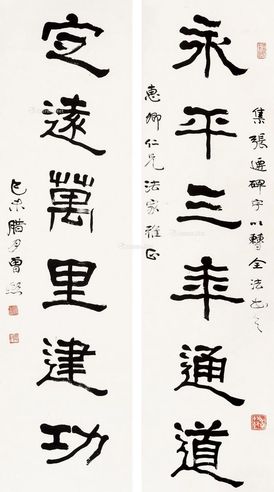 集張遷碑字以鶴
永平三年通道
惠卿仁兄法家雅正
定遠萬里建功
己未臘月曾熙